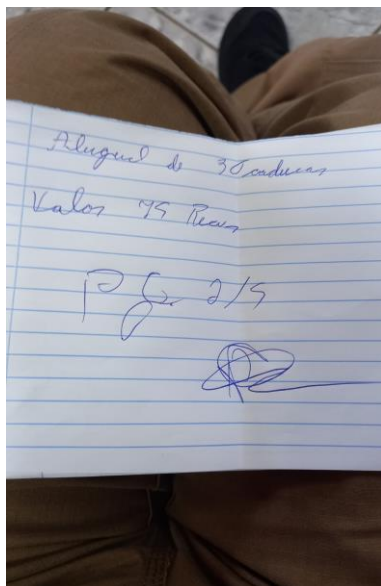 Aluguel de 30 cadeiras
Valor 75 Reais
Pg. 2/5